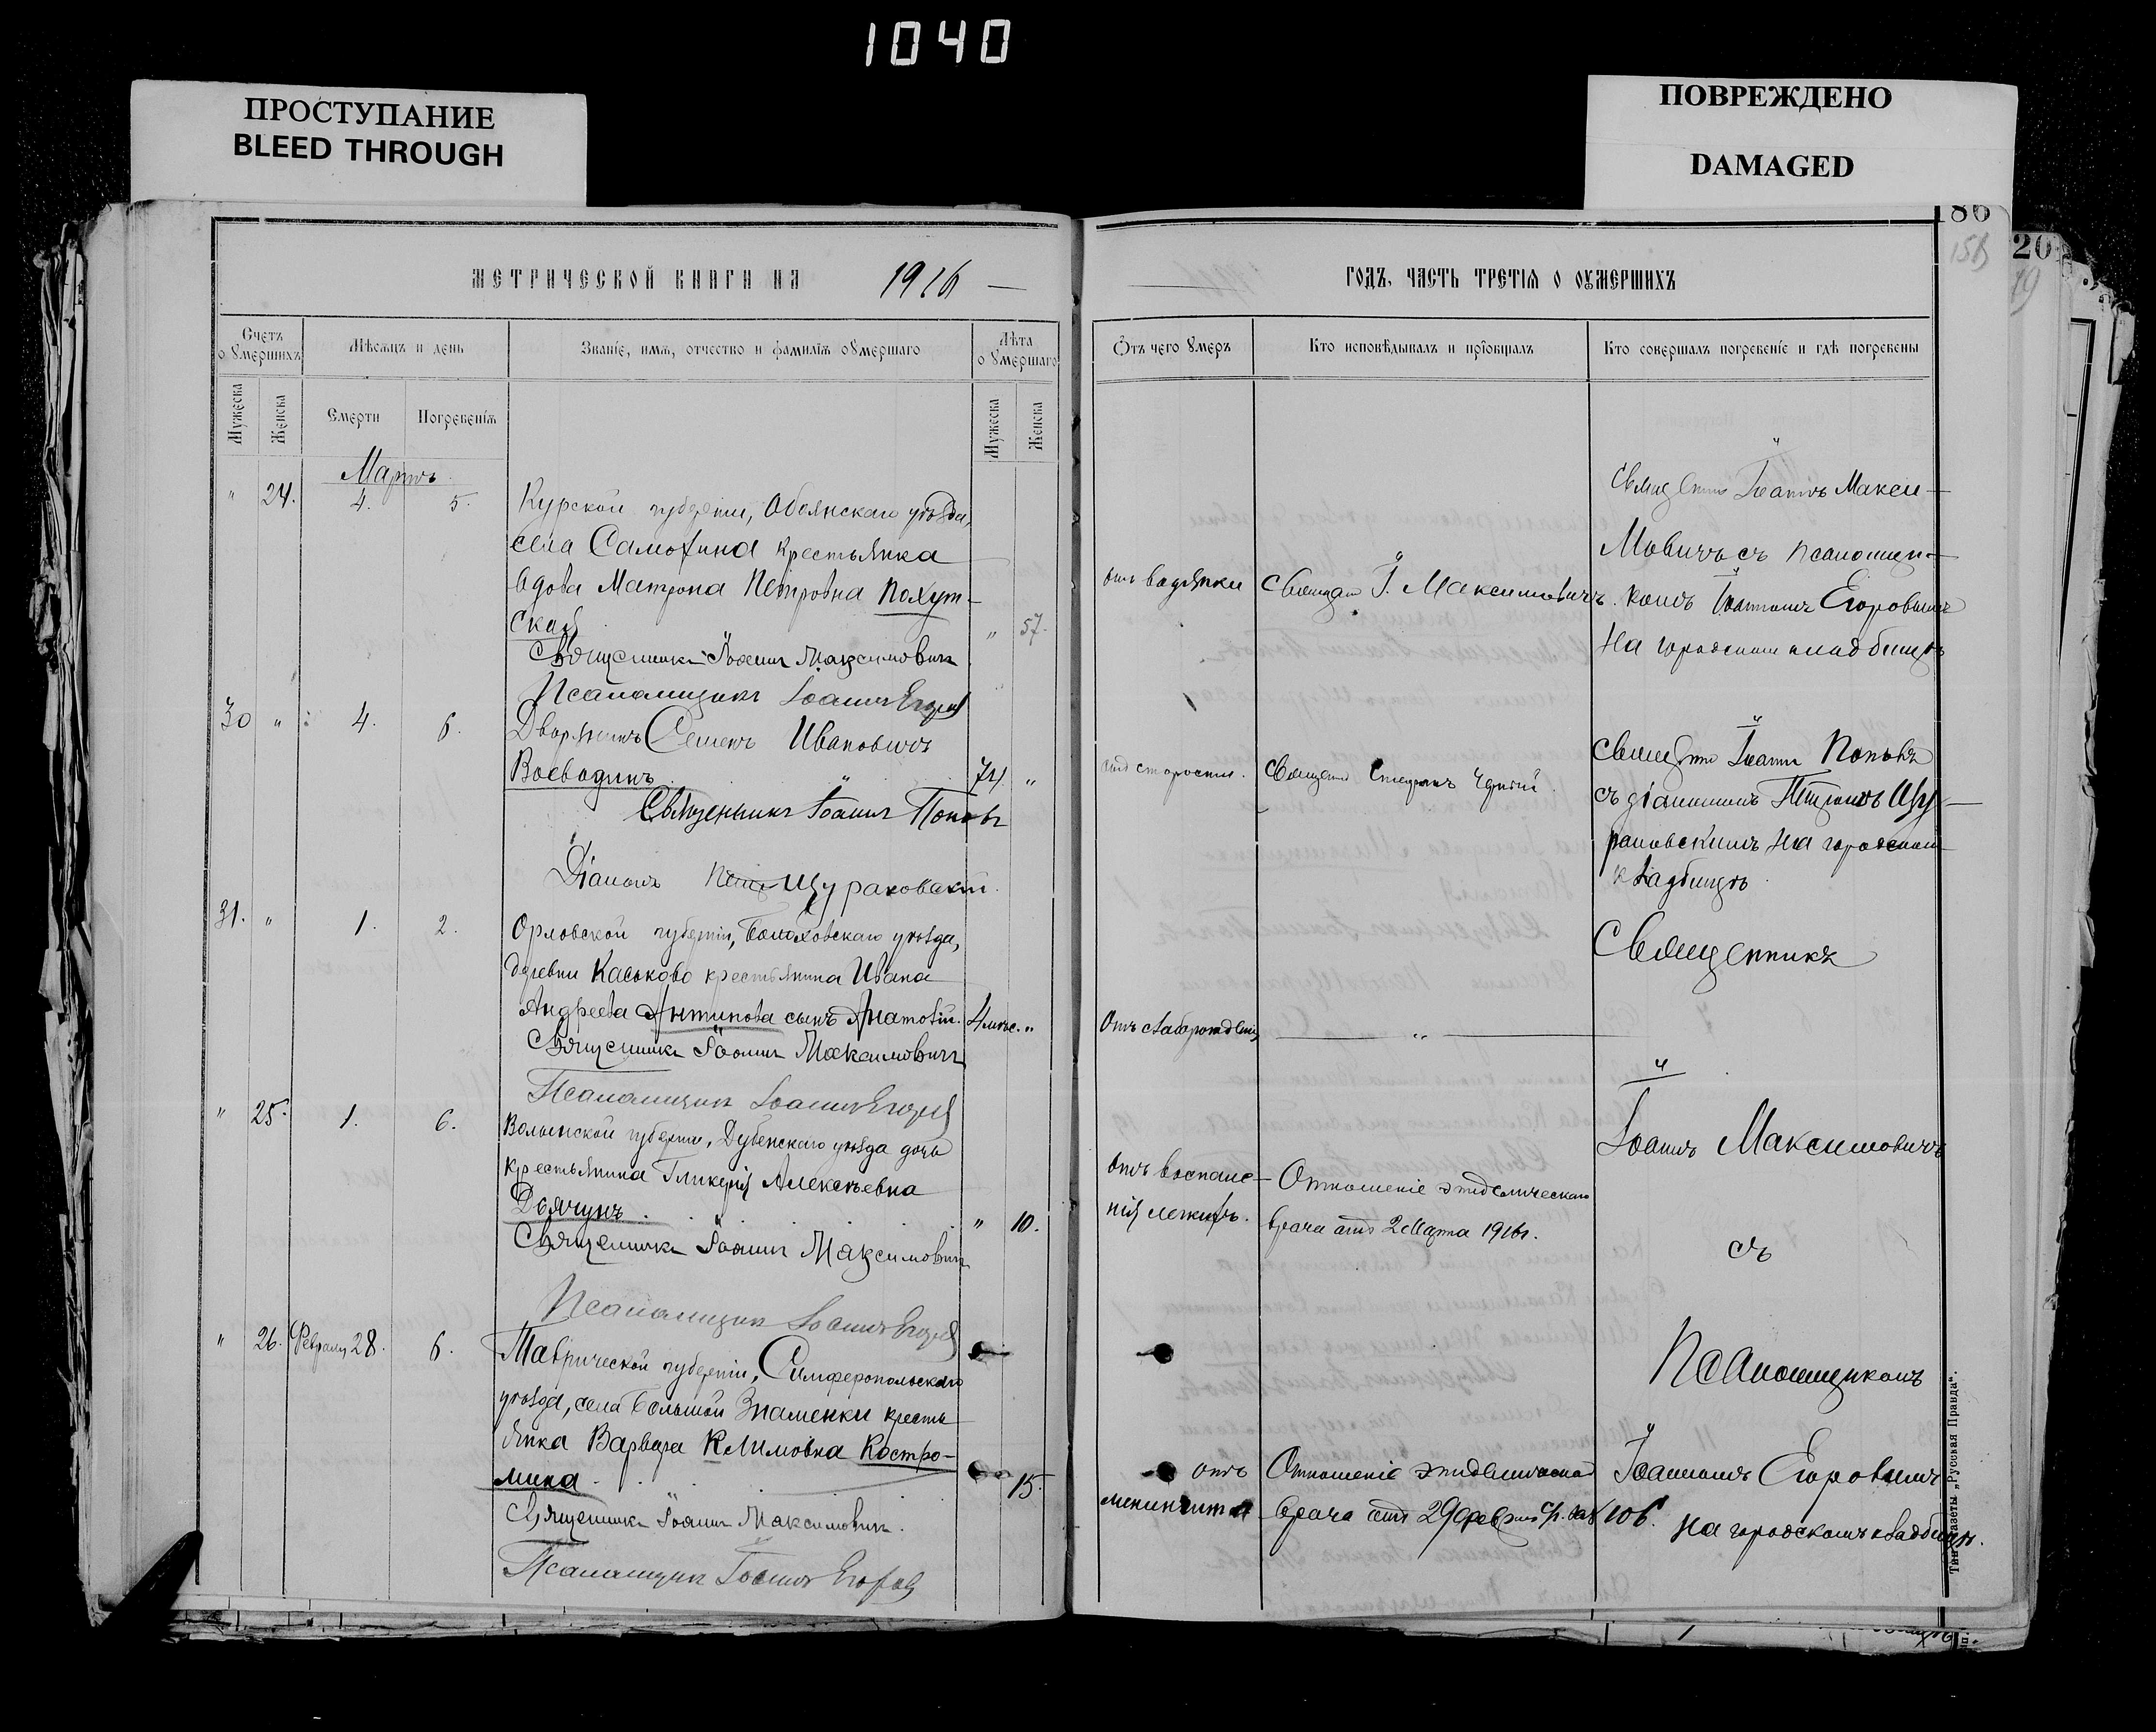 1040
ПРОСТУПАНИЕ
BLEED THROUGH
ПОВРЕЖДЕНО
DAMAGED
86
20
19
МЕТРИЧЕСКОЙ КНИГИ НА 1916
ГОДЪ, ЧАСТЬ ТРЕТІЯ О ОУМЕРШИХЪ
Счетъ о умершихъ
Мѣсяцъ и день
Званіе, имя, отчество и фамилія оумершаго
Лѣта оумершаго
Отъ чего умеръ
Кто исповѣдывалъ и пріобщалъ
Кто совершалъ погребеніе и гдѣ погребены
Мужеска
Женска
Смерти
Погребенія
Мужеска
Женска
Мартъ
" 24. 4. 5.
Курской губерніи, Обоянскаго уѣзда,
села Самохина крестьянка
вдова Матрона Петровна Похут-
ская
" 57.
Священникъ Іоаннъ Максимовичъ
Псаломщикъ Іоаннъ Егоровъ
отъ водянки
Священ I. Максимовичъ.
Священникъ Іоаннъ Макси-
мовичъ съ псаломщи-
комъ Іоанномъ Егоровымъ
на городскомъ кладбищѣ
30 " 4. 6.
Дворянинъ Семенъ Ивановичъ
Воеводинъ
74. "
Священникъ Іоаннъ Поповъ
Діаконъ Щураковскій.
отъ старости.
Священ
Священ Іоаннъ Поповъ
съ діакономъ Петромъ Щу-
раковскимъ на городскомъ
кладбищѣ
31. " 1. 2.
Орловской губерніи, Болховскаго уѣзда,
деревни Каськово крестьянина Ивана
Андреева Антипова сынъ Анатолій.
4 мѣс. "
Священникъ Іоаннъ Максимовичъ
Псаломщикъ Іоаннъ Егоровъ
Отъ слаборожденія
"
Священникъ
" 25. 1. 6.
Волынской губерніи, Дубенскаго уѣзда дочь
крестьянина Гликерія Алексѣевна
" 10.
Священникъ Іоаннъ Максимовичъ
Псаломщикъ Іоаннъ Егоровъ
отъ воспале-
нія легкихъ.
Отношеніе эпидемическаго
врача отъ 2 Марта 1916г.
Іоаннъ Максимовичъ
съ
" 26. Февраля 28. 6.
Таврической губерніи, Симферопольскаго
уѣзда, села Большой Знаменки кресть
янка Варвара Климовна Костро-
мина.
15.
Священникъ Іоаннъ Максимовичъ.
Псаломщикъ Іоаннъ Егоровъ
отъ
менингита
Отношеніе эпидемическа
врача отъ 29 февраля с/г. за № 106.
Псаломщикомъ
Іоанномъ Егоровымъ
на городскомъ кладбищѣ.
Тип. газеты „Русская Правда“.